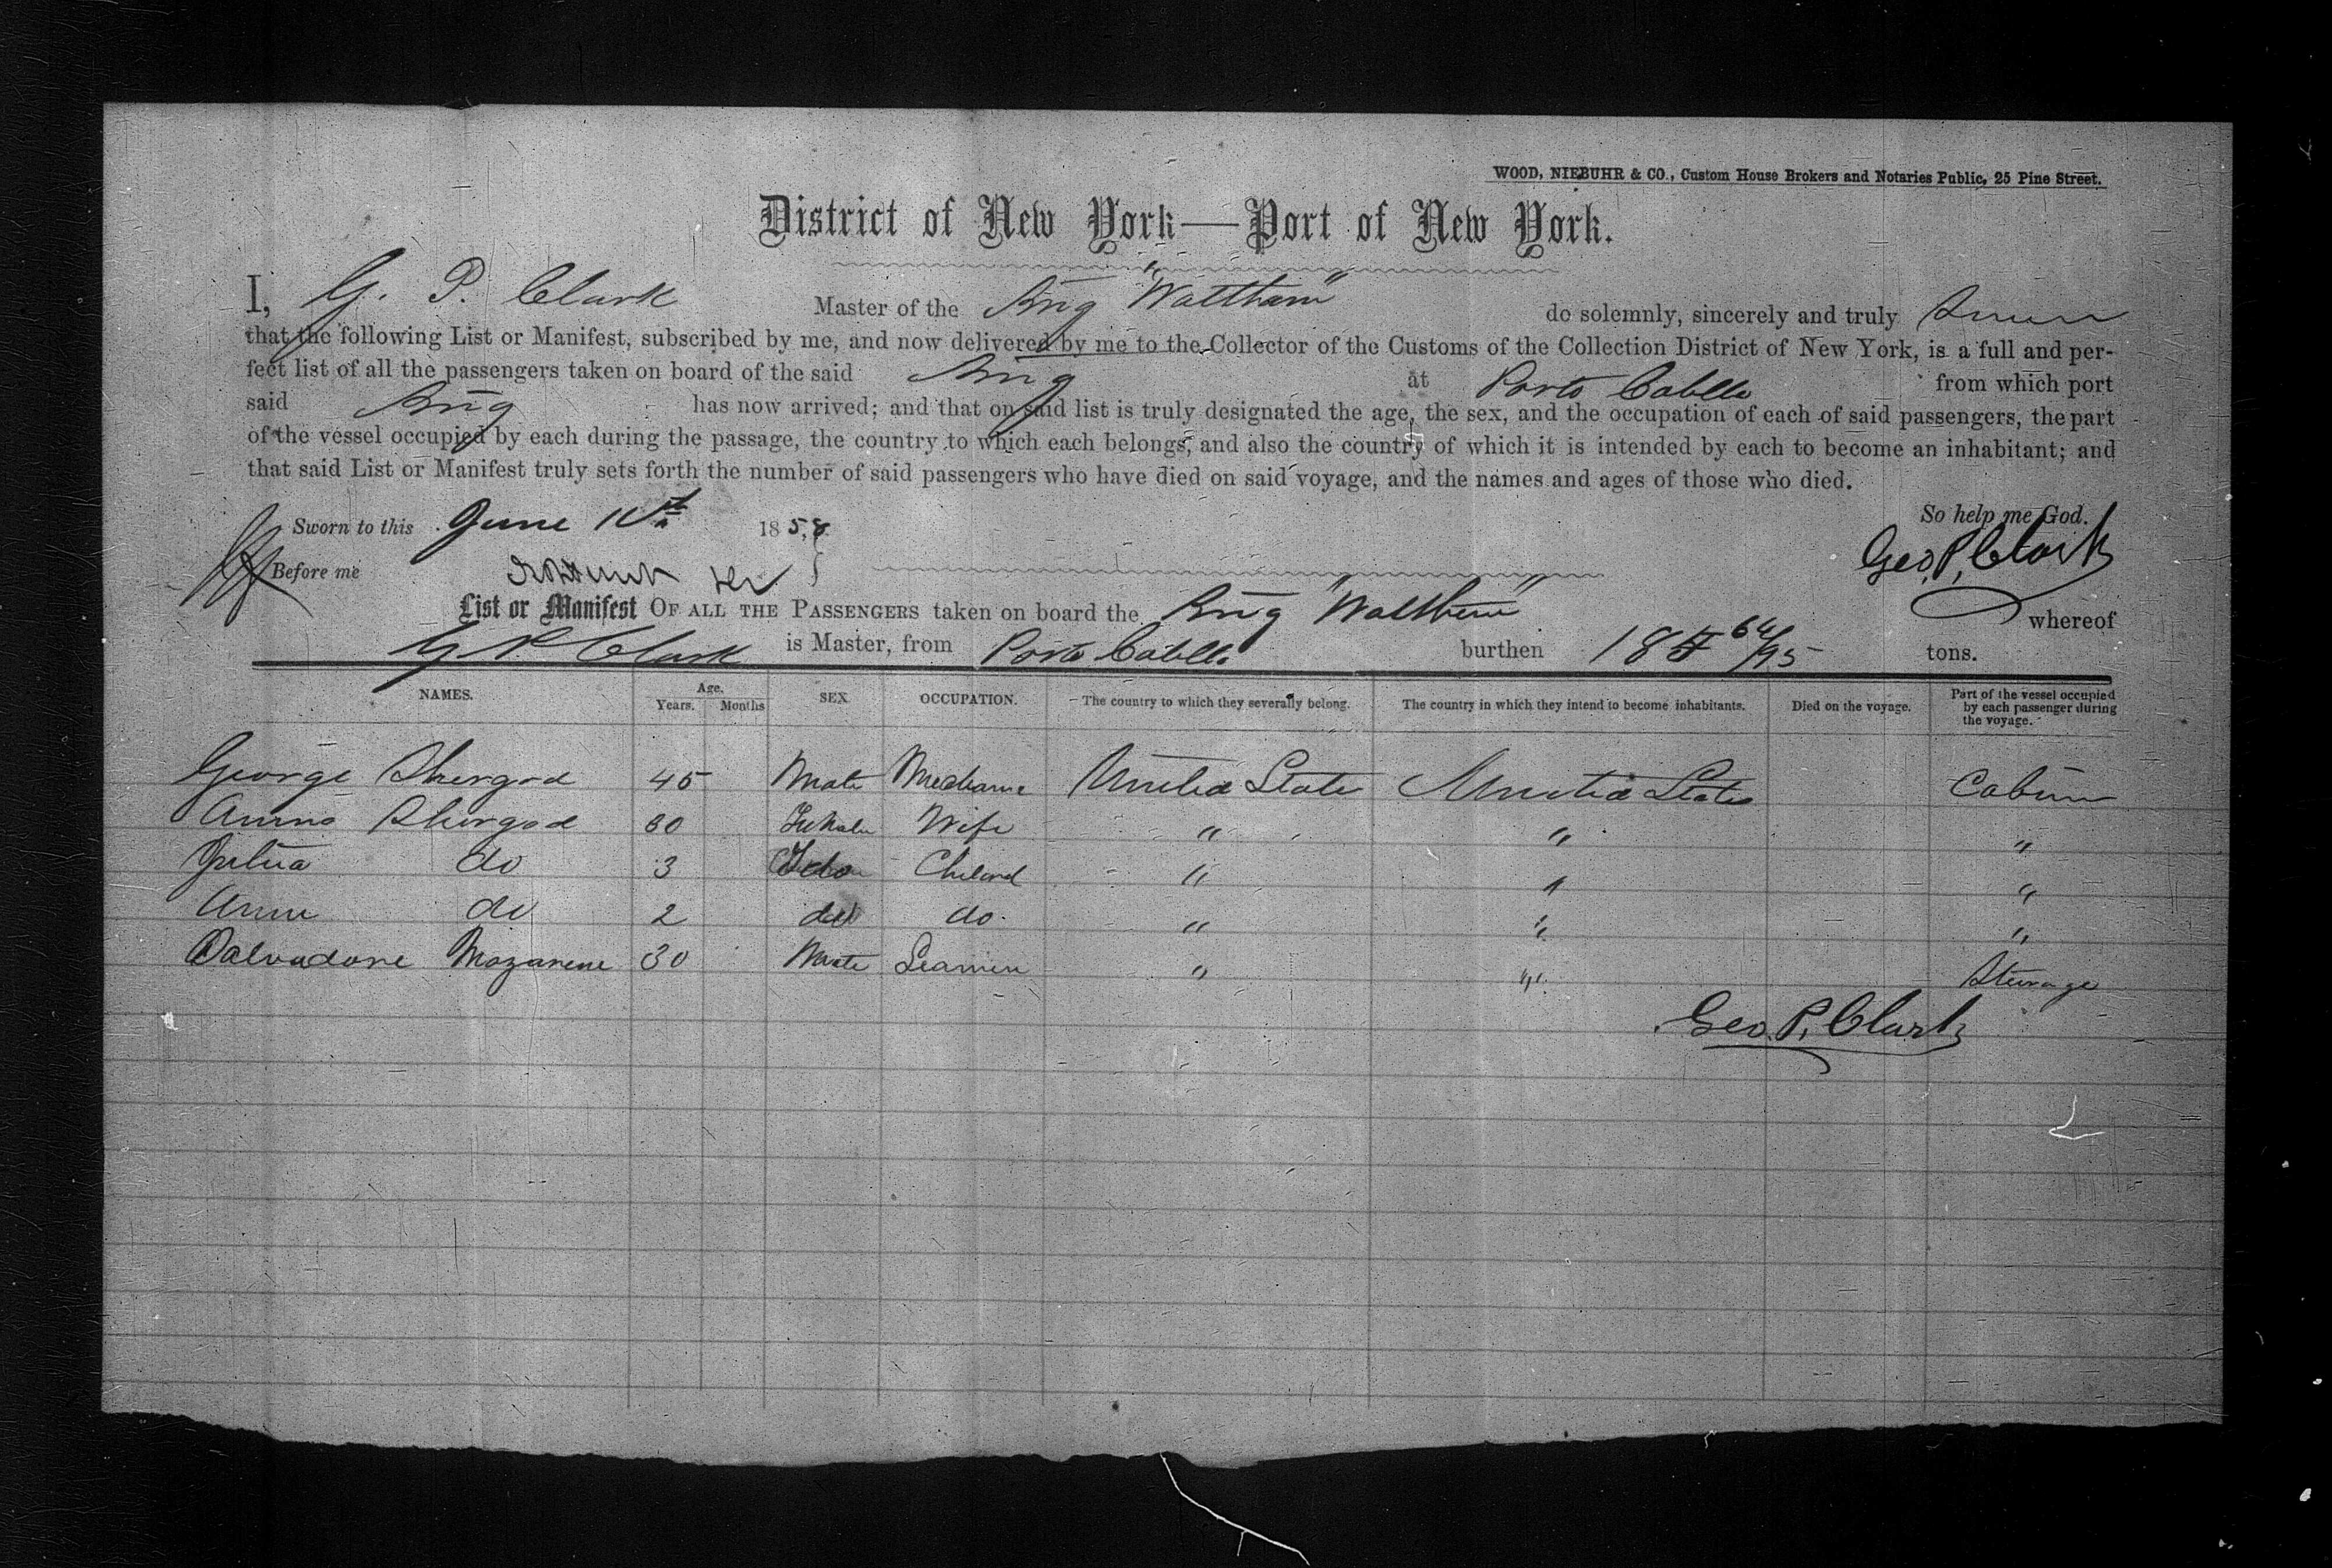 WOOD, NIEBUHR & CO., Custom House Brokers and Notaries Public, 25 Pine Street.
District of New York—Port of New York.
I, G. P. Clark Master of the Brig "Waltham" do solemnly, sincerely and truly Swear
that the following List or Manifest, subscribed by me, and now delivered by me to the Collector of the Customs of the Collection District of New York, is a full and per-
fect list of all the passengers taken on board of the said Brig at Porto Cabello from which port
said Brig has now arrived; and that on said list is truly designated the age, the sex, and the occupation of each of said passengers, the part
of the vessel occupied by each during the passage, the country to which each belongs, and also the country of which it is intended by each to become an inhabitant; and
that said List or Manifest truly sets forth the number of said passengers who have died on said voyage, and the names and ages of those who died.
Sworn to this June 1858. So help me God.
Before me Geo. P. Clark
List or Manifest OF ALL THE PASSENGERS taken on board the Brig "Waltham" whereof
G P Clark is Master, from Porto Cabello burthen tons.
NAMES. Age. Years. Months SEX OCCUPATION. The country to which they severally belong. The country in which they intend to become inhabitants. Died on the voyage. Part of the vessel occupied by each passenger during the voyage.
George 45 Male Mechanic United State United States Cabin
30 Female Wife " " "
Julia do 3 do Child " " "
Ann do 2 do do " " "
Salvadore Nazarene 30 Male Seamen " " Steerage
Geo. P. Clark